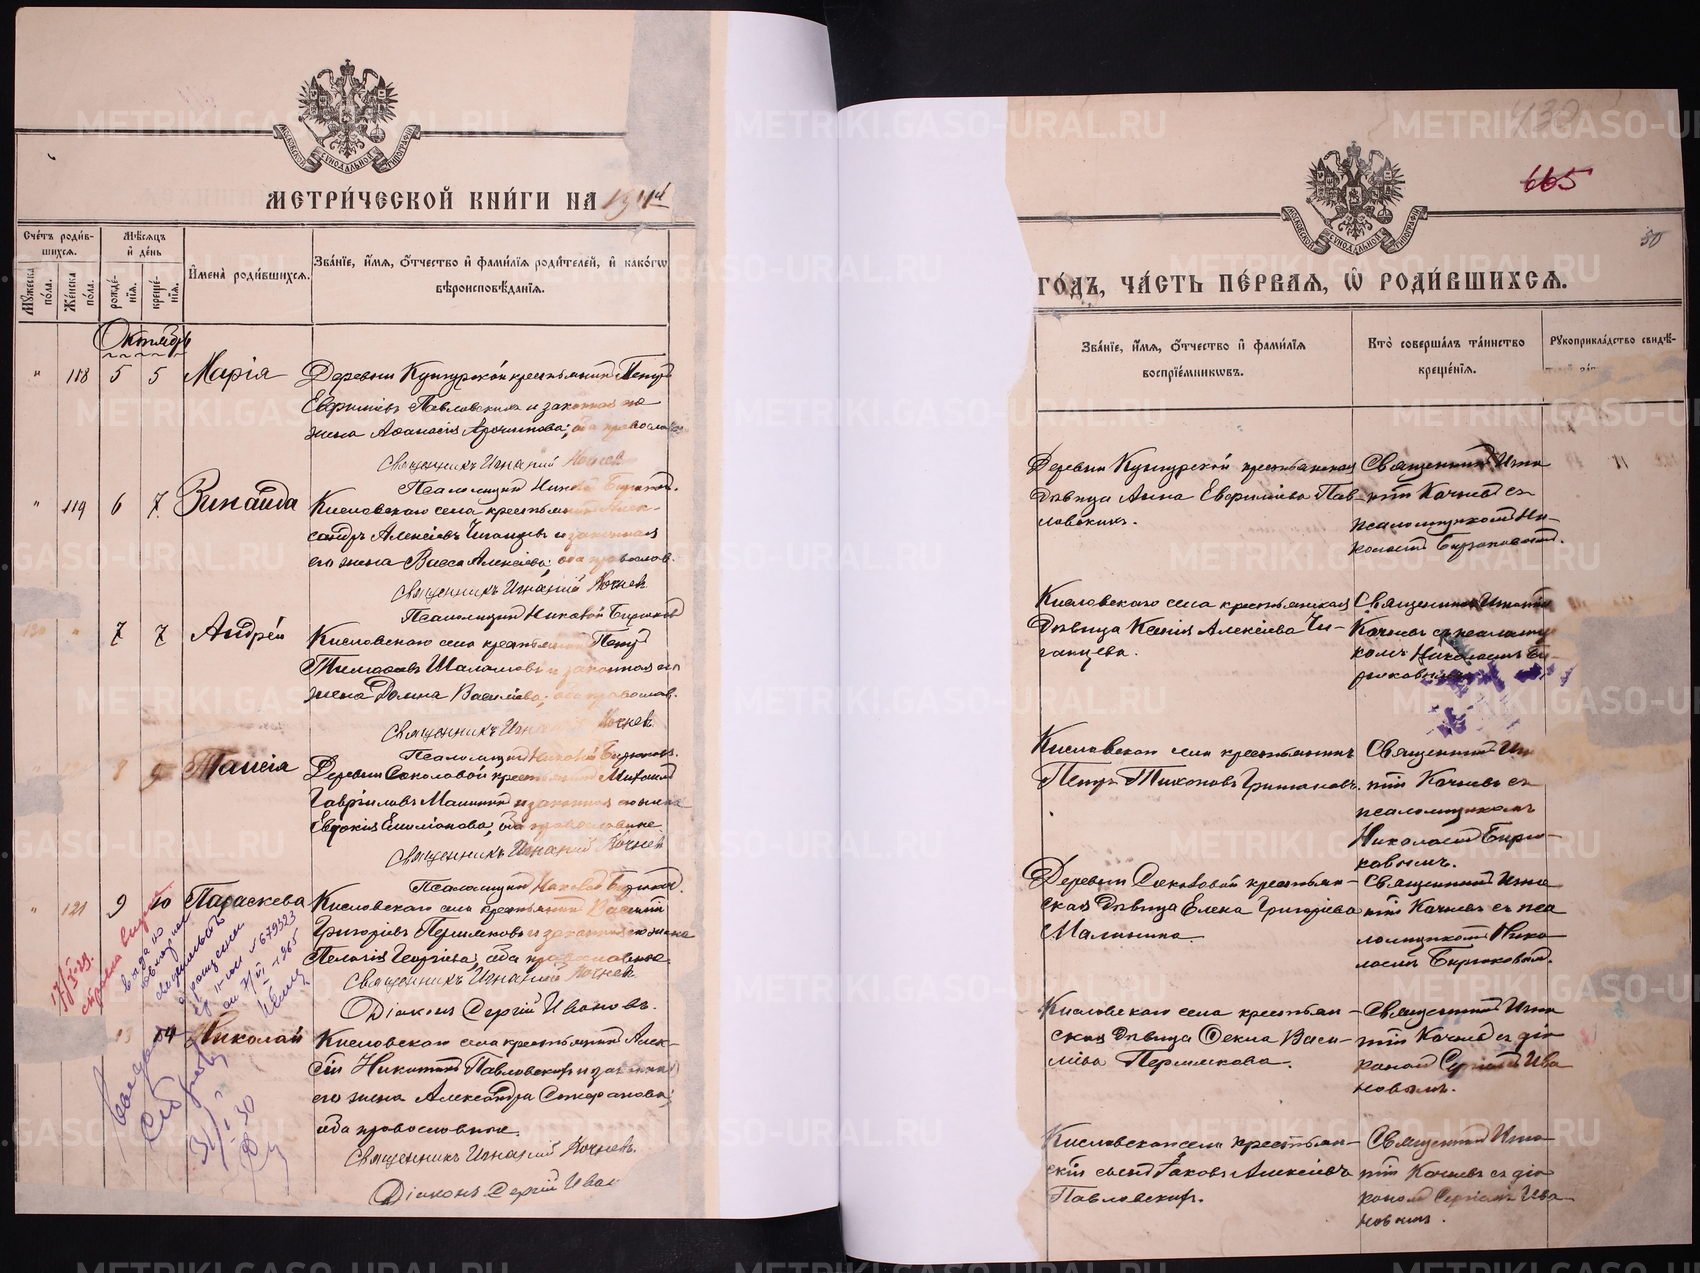 МОСКОВСКОЙ СѴНОДАЛЬНОЙ ТИПОГРАФІИ
МЕТРИ́ЧЕСКОЙ КНИ́ГИ НА 1911
Сче́тъ роди́в-
шихсѧ.
Мѣ́сѧцъ
и҆ де́нь
Мꙋ́жеска
по́ла.
Же́нска
по́ла.
рожде́-
нїѧ.
креще́-
нїѧ.
И҆мена̀ роди́вшихсѧ.
Зва́нїе, и҆́мѧ, ѻ҆́тчество и҆ фами́лїѧ роди́телей, и҆ како́гѡ
вѣроисповѣ́данїѧ.
Октябрь
" 118 5 5 Марія
Деревни Кунгурской крестьянинъ Петръ
Евфиміевъ Павловскихъ и законная его
жена Аѳанасія Архипова; оба православ
Священникъ Игнатій Кочневъ
Псаломщикъ Николай Бирюков.
" 119 6 7 Зинаида
Кисловскаго села крестьянинъ Алек-
сандръ Алексіевъ Чиганцевъ и законная
его жена Васса Алексіева; оба православ.
Священникъ Игнатій Кочнев
Псаломщикъ Николай Бирюков
120 " 7 7 Андрей
Кисловскаго села крестьянинъ Петръ
Тимоѳеевъ Шаламовъ и законная его
жена Домна Василіева; оба православ.
Священникъ Игнатій Кочнев
Псаломщикъ Николай Бирюков.
8 9 Таисія
Деревни Соколовой крестьянинъ Михаилъ
Гавріиловъ Малининъ и законная его жена
Евдокія Емиліанова; оба православные
Священникъ Игнатій Кочнев
Псаломщикъ Николай Бирюков.
" 121 9 10 Параскева
Кисловскаго села крестьянинъ Василій
Григорьевъ Пермяковъ и законная его жена
Пелагія Георгіева; оба православные.
Священникъ Игнатій Кочнев
Діаконъ Сергій Ивановъ.
13 14 Николай
Кисловскаго села крестьянинъ Алек-
сій Никитинъ Павловскихъ и законная
его жена Александра Стефанова;
оба православные.
Священникъ Игнатій Кочневъ.
Діаконъ Сергій Иван
17/X-29.
справка выдана
выдано
повторное
свидетельств
о рощении
№ 679323
1965
31/I-30
430
665
50
МОСКОВСКОЙ СѴНОДАЛЬНОЙ ТИПОГРАФІИ
ГО́ДЪ, ЧА́СТЬ ПЕ́РВАѦ, Ѽ РОДИ́ВШИХСѦ.
Зва́нїе, и҆́мѧ, ѻ҆́тчество и҆ фами́лїѧ
воспрїе́мникѡвъ.
Кто̀ соверша́лъ та́инство
креще́нїѧ.
Рꙋкоприкла́дство свидѣ́-
Деревни Кунгурской крестьянская
дѣвица Анна Евфиміева Пав-
ловскихъ.
Священникъ Игна
тій Кочневъ съ
псаломщикомъ Ни-
колаемъ Бирюковымъ.
Кисловскаго села крестьянская
дѣвица Ксенія Алексіева Чи-
ганцева.
Священникъ Игнатій
Кочневъ съ псаломщи
комъ Николаемъ Би-
рюковымъ
Кисловскаго села крестьянинъ
Петръ Тихоновъ Григановъ.
Священникъ Игн
тій Кочневъ съ
псаломщикомъ
Николаемъ Бирю-
ковымъ.
Деревни Соколовой крестьян-
ская дѣвица Елена Григоріева
Малинина.
Священникъ Игна
тій Кочневъ съ пса
ломщикомъ Нико
лаемъ Бирюковым.
Кисловскаго села крестьян-
ская дѣвица Ѳекла Васи-
ліева Пермякова.
Священникъ Игна
тій Кочневъ съ діа
кономъ Сергіемъ Ива
новымъ.
Кисловскаго села крестьян-
скій сынъ Іаковъ Алексіевъ
Павловскихъ.
Священникъ Игна
тій Кочневъ съ діа
кономъ Сергіемъ Ива
новымъ.
METRIKI.GASO-URAL.RU